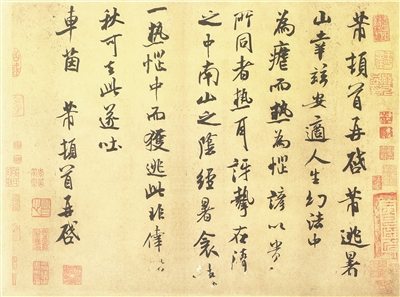 芾頓首再啓芾逃暑
山幸兹安適人生幻法中
為瘧而熱為惱諺以貴
所同者熱耳訝摯在清
之中南山之陰經暑衾
一熱惱中而獲逃此非幸
秋可去此遂吐
車茵 芾頓首再啓